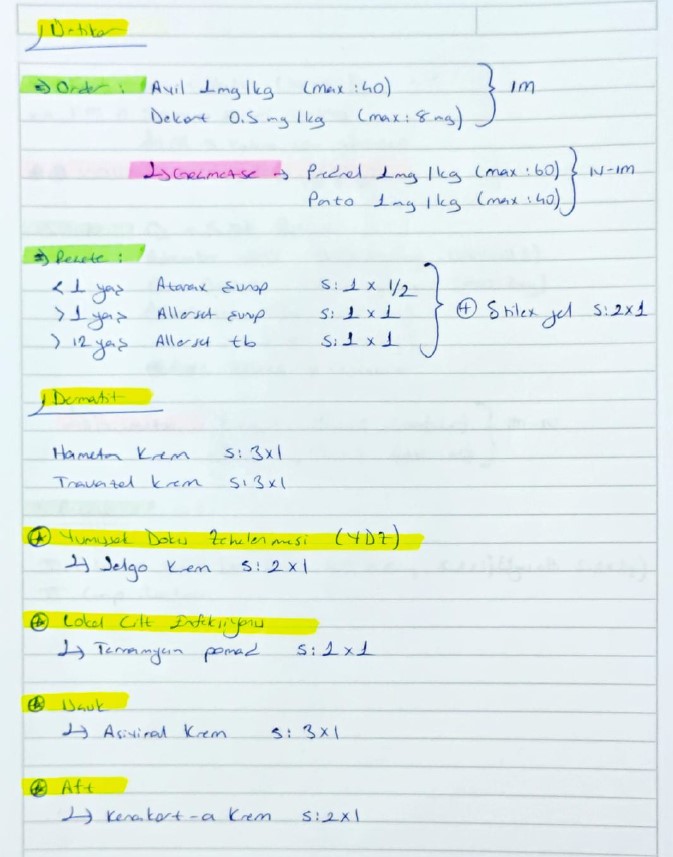 Ürtiker
⇒ Order : Avil 1mg/kg (max : 40) } IM
Dekort 0.5 mg/kg (max : 8 mg)
↳ Geçmezse → Prednol 1mg/kg (max : 60) } IV-IM
Panto 1mg/kg (max : 40)
⇒ Reçete :
< 1 yaş Atarax şurup S: 1 x 1/2
> 1 yaş Allerset şurup S: 1 x 1 } ⊕ Stilex jel S: 2x1
> 12 yaş Allerset tb S: 1 x 1
Dermatit
Hametan Krem S: 3x1
Travazol krem S: 3x1
Yumuşak Doku Zedelenmesi (YDZ)
↳ Jelgo Krem S: 2x1
Lokal Cilt Enfeksiyonu
↳ Terramycin pomad S: 1x1
Uçuk
↳ Asiviral Krem S: 3x1
Aft
↳ Kenakort-a Krem S: 2x1